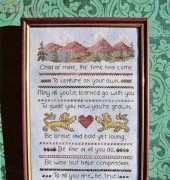 Child of mine, the time has come
To venture on your own.
May all you've learned go with you
To guide you now you're grown.
Be brave and bold yet loving,
Be fair in all you do,
Be wise but have compassion,
To all you are, be true.